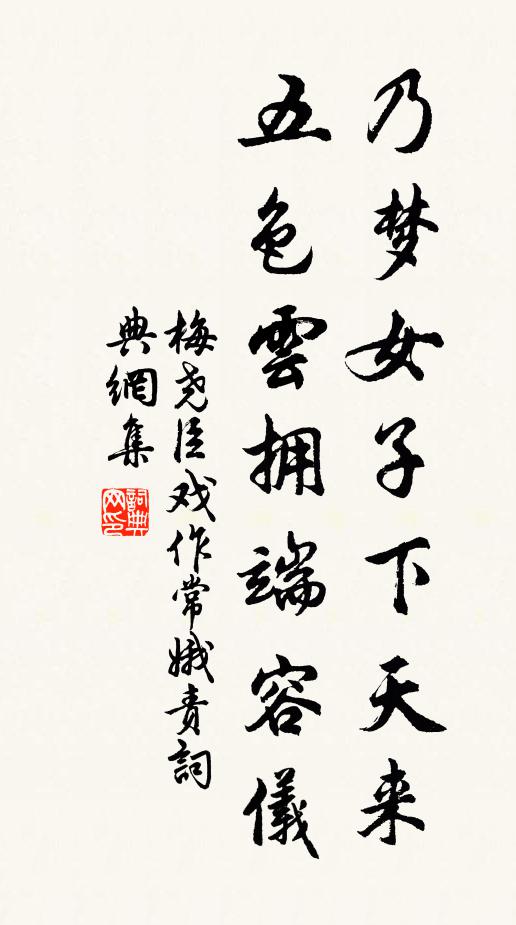 乃梦女子下天来
五色雲拥端容儀
梅尧臣戏作常娥责詞
典網集
詞典網印